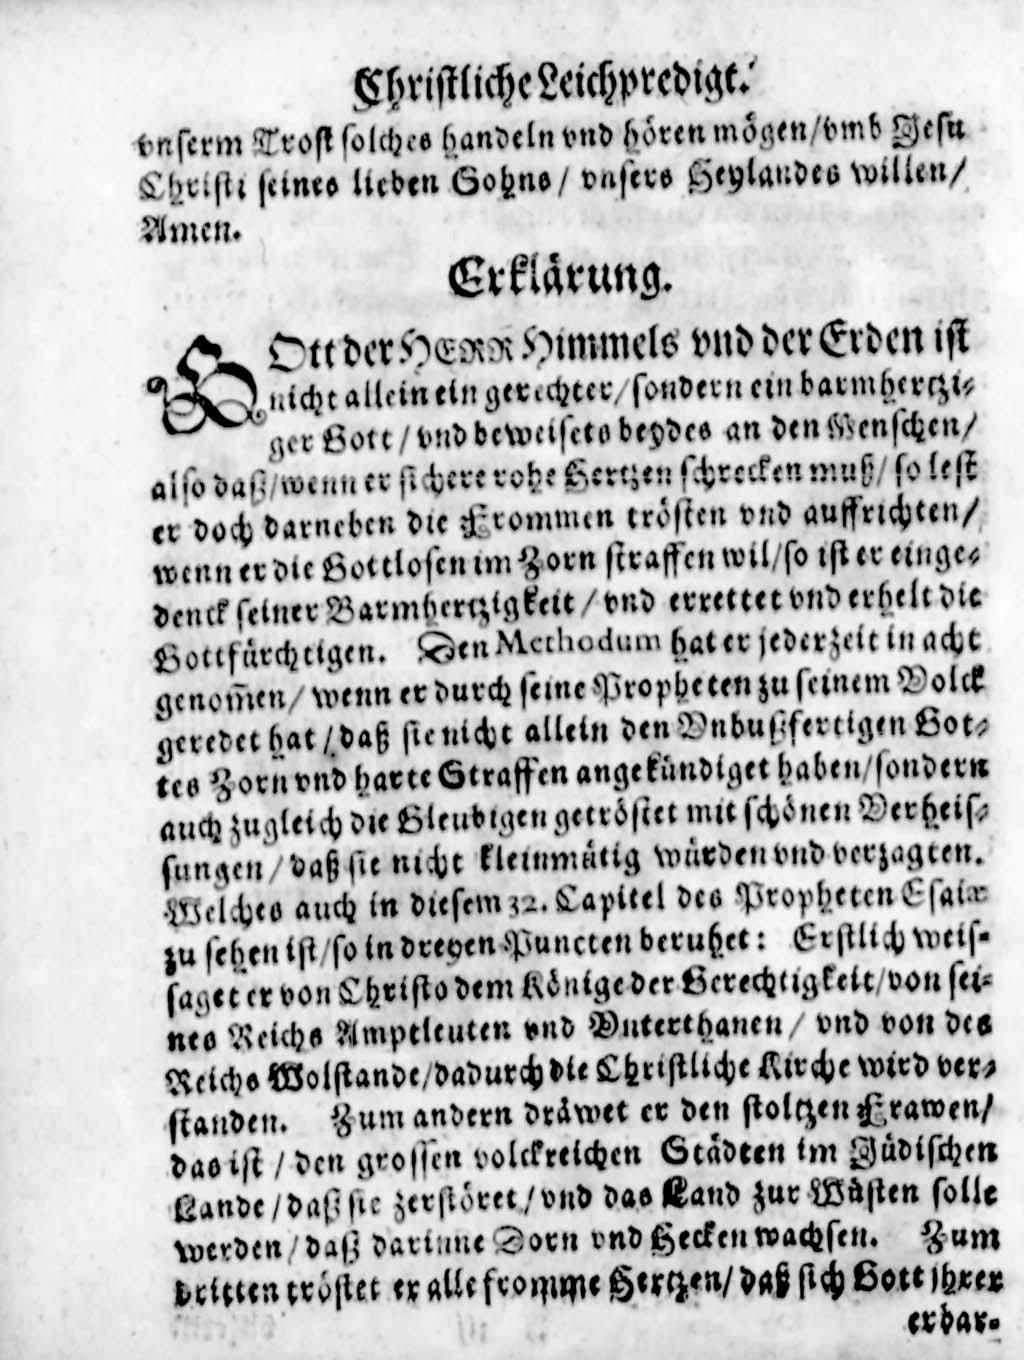 Christliche Leichpredigt.
vnserm Trost solches handeln vnd hören mögen/vmb Jesu
Christi seines lieben Sohns/ vnsers Heylandes willen/
Amen.
Erklärung.
GOtt der HERR Himmels vnd der Erden ist
nicht allein ein gerechter/sondern ein barmhertzi-
ger Gott/vnd beweisets beydes an den Menschen/
also daß/wenn er sichere rohe Hertzen schrecken muß/ so lest
er doch darneben die Frommen trösten vnd auffrichten/
wenn er die Gottlosen im Zorn straffen wil/so ist er einge-
denck seiner Barmhertzigkeit/vnd errettet vnd erhelt die
Gottfürchtigen. Den Methodum hat er jederzeit in acht
genom̅en/wenn er durch seine Propheten zu seinem Volck
geredet hat/daß sie nicht allein den Vnbußfertigen Got-
tes Zorn vnd harte Straffen angekündiget haben/sondern
auch zugleich die Gleubigen getröstet mit schönen Verheis-
sungen/daß sie nicht kleinmütig würden vnd verzagten.
Welches auch in diesem 32. Capitel des Propheten Esaiæ
zu sehen ist/so in dreyen Puncten beruhet: Erstlich weis-
saget er von Christo dem Könige der Gerechtigkeit/von sei-
nes Reichs Amptleuten vnd Vnterthanen/ vnd von des
Reichs Wolstande/dadurch die Christliche Kirche wird ver-
standen. Zum andern dräwet er den stoltzen Frawen/
das ist/den grossen volckreichen Städten im Jüdischen
Lande/daß sie zerstöret/vnd das Land zur Wüsten solle
werden/daß darinne Dorn vnd Hecken wachsen. Zum
dritten tröstet er alle fromme Hertzen/daß sich Gott jhrer
erbar-